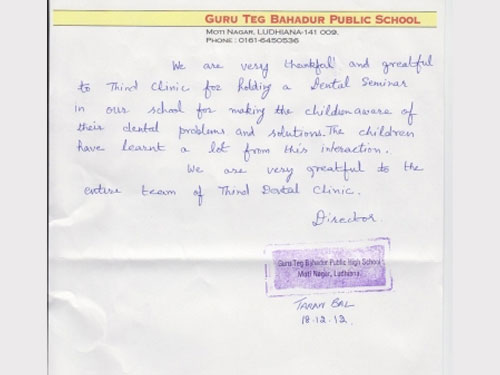 GURU TEG BAHADUR PUBLIC SCHOOL
MOTI NAGAR, LUDHIANA-141 009.
PHONE : 0161-6450536
We are very thankful and greatful
to Thind Clinic for holding a Dental Seminar
in our school for making the children aware of
their dental problems and solutions. The children
have learnt a lot from this interaction.
We are very greatful to the
entire team of Thind Dental Clinic.
Director
Guru Teg Bahadur Public High School
Moti Nagar, Ludhiana.
TARAN BAL
18.12.12.